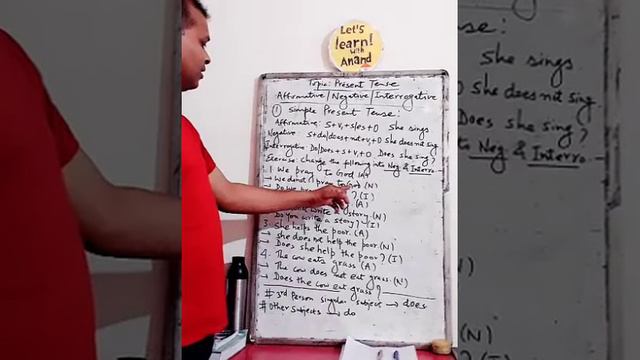 Let's
learn!
with
Anand
Topic: Present Tense
Affirmative/Negative/Interrogative
① Simple Present Tense:
Affirmative: S+V1+s/es+O She sings
Negative: S+do/does+not+V1+O She does not sing
Interrogative Do/Does+S+V1+O Does she sing?
Exercise: Change the following into Neg & Interro.
1. We pray to God (A)
→ We do not pray to God (N)
→ Do We ? (I)
(A)
write a story. (N)
Do you write a story? (I)
3. She helps the poor. (A)
→ She does not help the poor. (N)
→ Does she help the poor? (I)
4. The cow eats grass. (A)
→ The cow does not eat grass. (N)
→ Does the cow eat grass?
# 3rd Person Singular Subject → does
# Other Subjects → do
ense:
She sings
She does not sing
Does she sing?
to Neg & Interro.
(N)